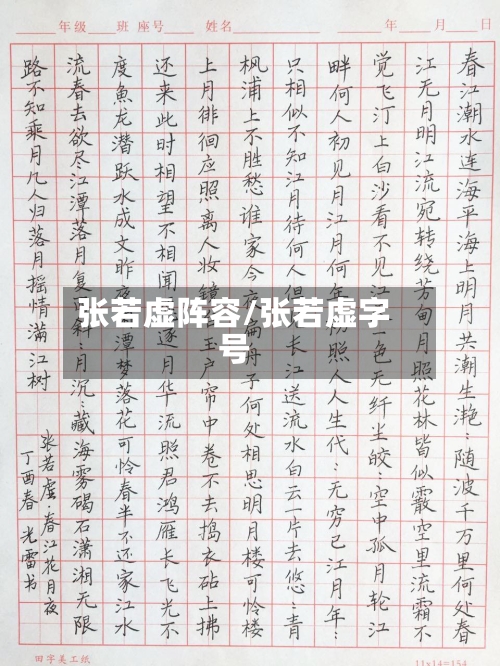 年级 班 座号 姓名 年 月 日
春江潮水连海平海上明月共潮生滟:随波千万里何处春
江无月明江流宛转绕芳甸月照花林皆似霰空里流霜不
觉飞汀上白沙看不见江一色无纤尘皎:空中孤月轮江
畔何人初见月江月何年初照人人生代:无穷已江月年:
只相似不知江月待何人但长江送流水白云一片去悠:青
枫浦上不胜愁谁家今夜扁舟子何处相思明月楼可怜楼
上月徘徊应照离人妆镜玉户帘中卷不去捣衣砧上拂
还来此时相望不相闻逐月华流照君鸿雁长飞光不
度鱼龙潜跃水成文昨夜潭梦落花可怜春半不还家江水
流春去欲尽江潭落月复斜:月沉:藏海雾碣石潇湘无限
路不知乘月几人归落月摇情满江树
张若虚·春江花月夜
丁酉春 光雷书
张若虚阵容/张若虚字
号
田字美工纸
11x14=154